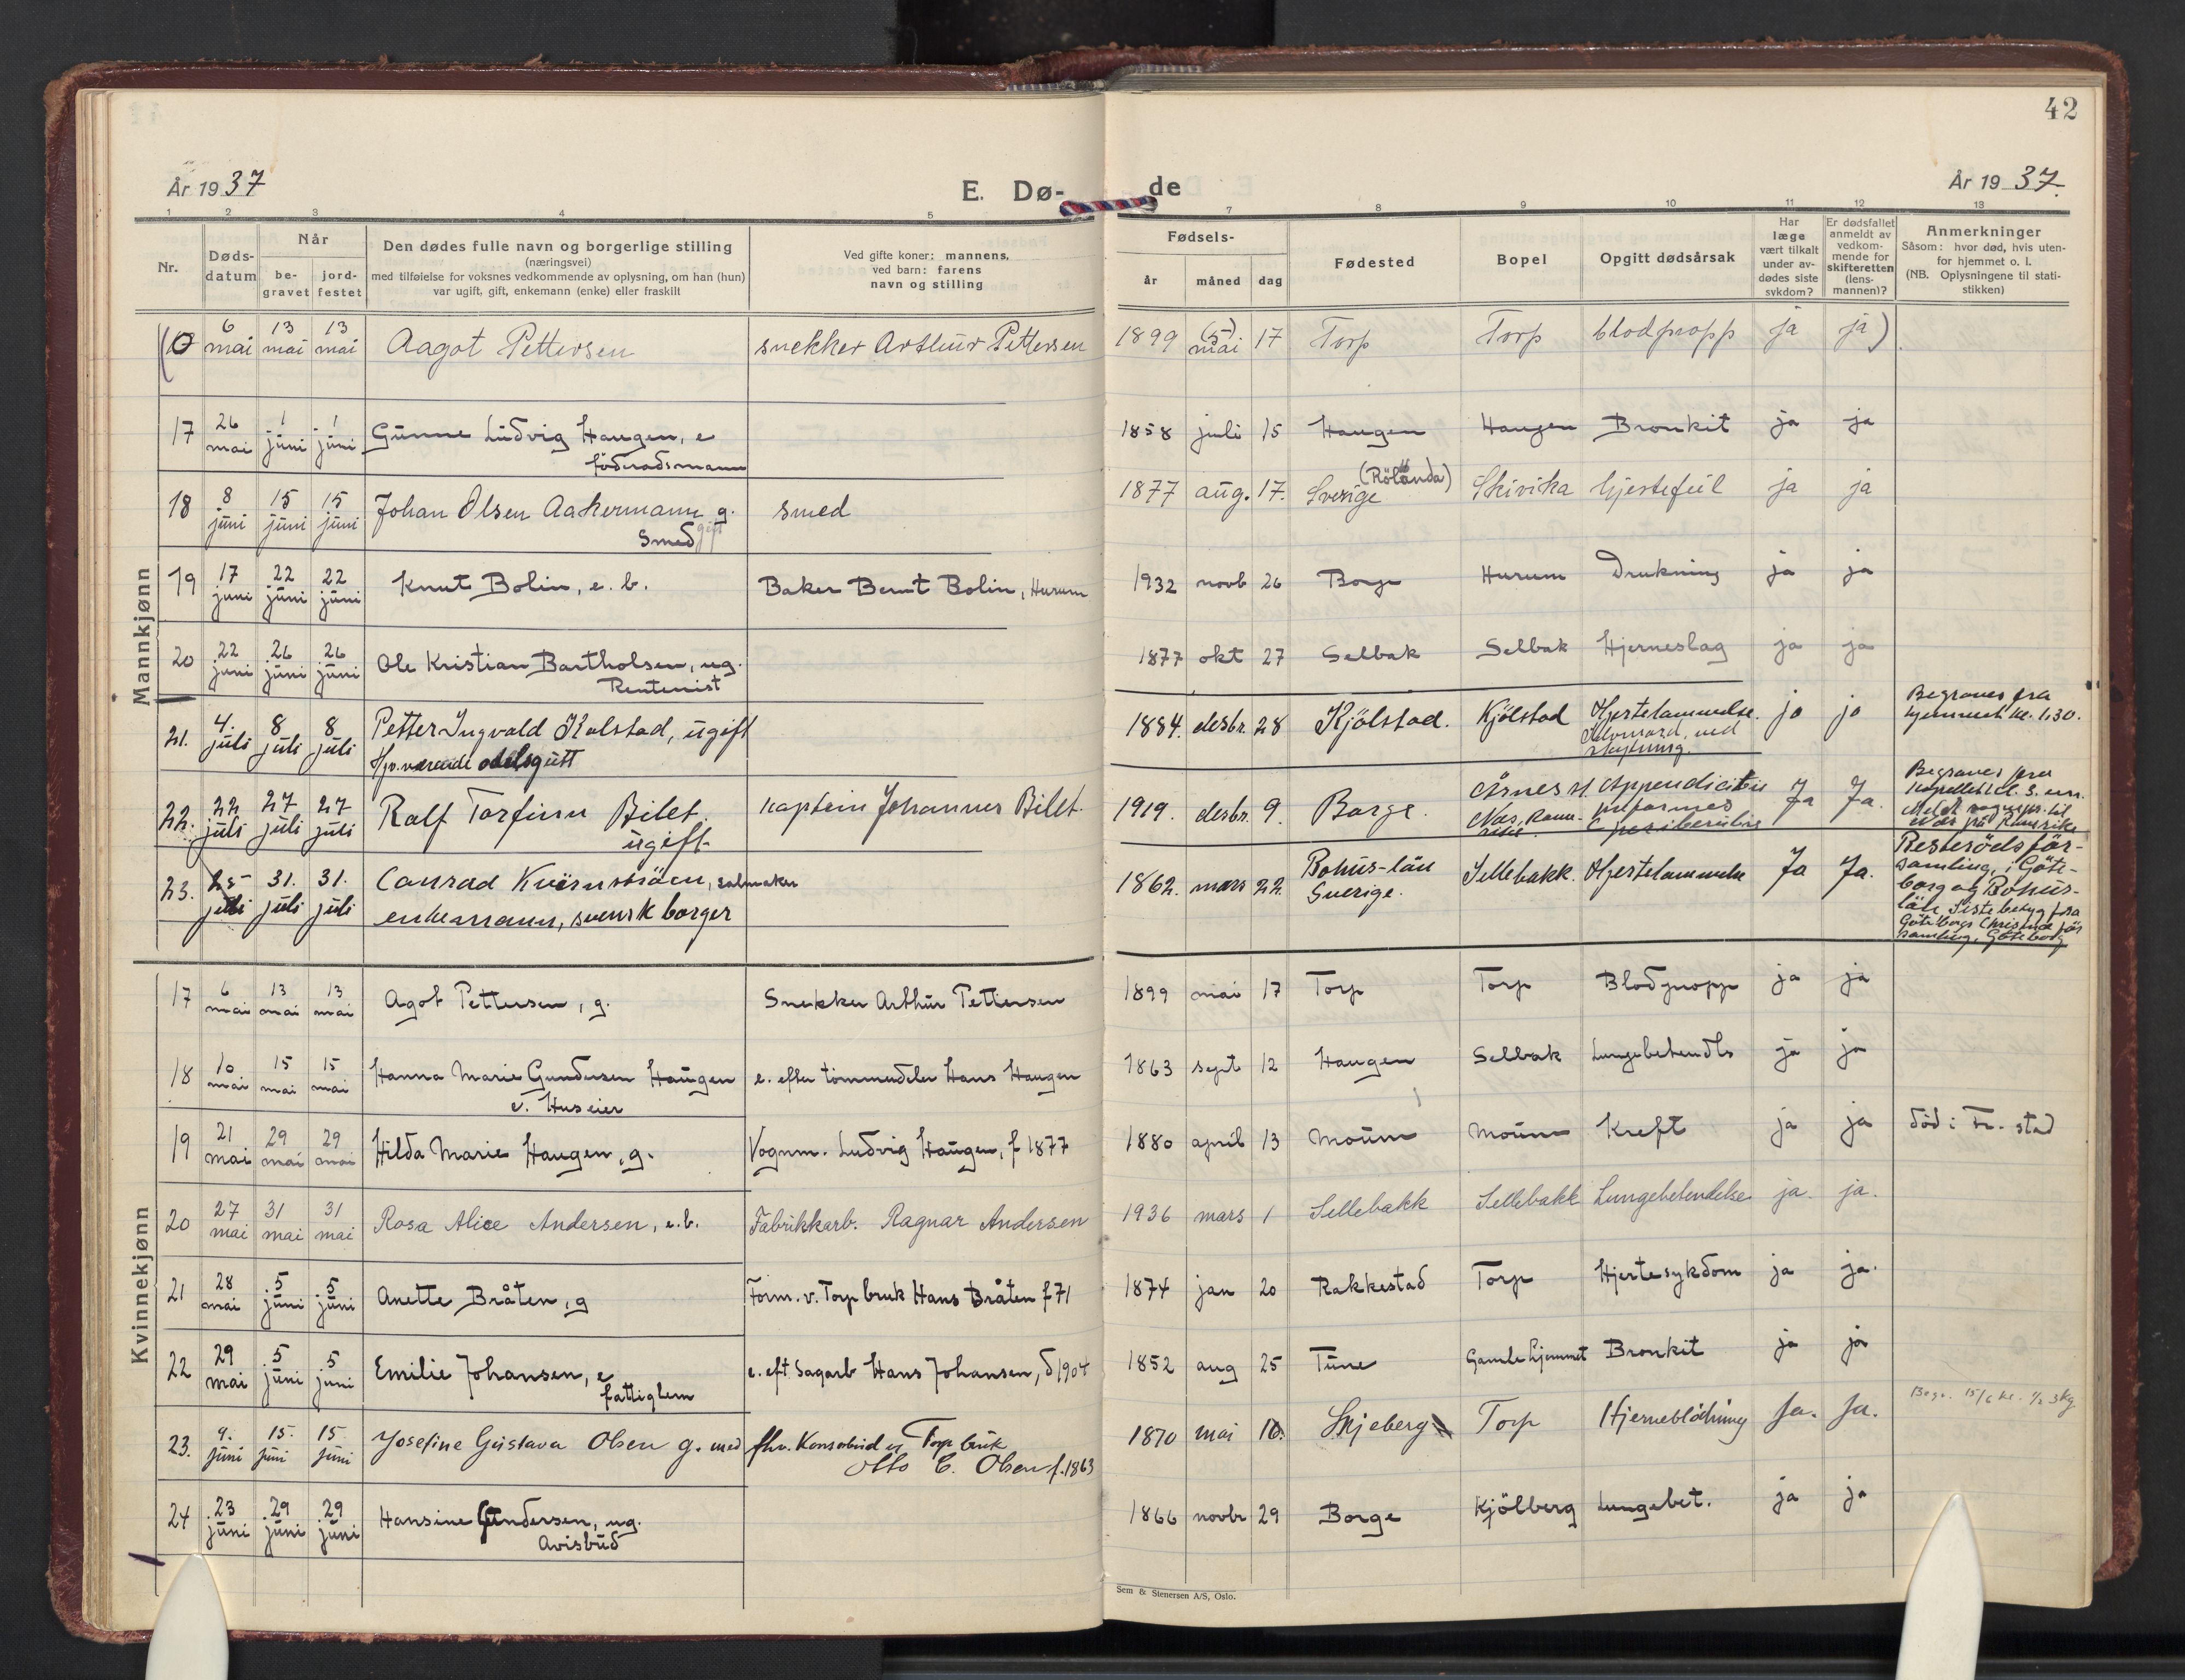 42
År 1937
E. Dø-
de
År 1937.
1 2 3 4 5 7 8 9 10 11 12 13
Nr.
Døds-
datum
Når
be-
gravet
jord-
festet
Den dødes fulle navn og borgerlige stilling
(næringsvei)
med tilføielse for voksnes vedkommende av oplysning, om han (hun)
var ugift, gift, enkemann (enke) eller fraskilt
Ved gifte koner: mannens,
ved barn: farens
navn og stilling
Fødsels-
år måned dag
Fødested
Bopel
Opgitt dødsårsak
Har
læge
vært tilkalt
under av-
dødes siste
sykdom?
Er dødsfallet
anmeldt av
vedkom-
mende for
skifteretten
(lens-
mannen)?
Anmerkninger
Såsom: hvor død, hvis uten-
for hjemmet o. l.
(NB. Oplysningene til stati-
stikken)
Mannkjønn
6 mai 13 mai 13 mai Aagot Pettersen snekker Arthur Pettersen 1899 (5) mai 17 Torp Torp blodpropp ja ja)
17 26 mai 1 juni 1 juni Gunne Ludvig Haugen, e 1858 juli 15 Haugen Haugen Bronkit ja ja
föderadsmann
18 8 juni 15 juni 15 juni Johan Olsen Aakermann g. smed 1877 aug. 17. Sverige (Rölanda) Skivika hjertefeil ja ja
Smed gift
19 17 juni 22 juni 22 juni Knut Bolin, e. b. Baker Bernt Bolin, Hurum 1932 novb 26 Borge Hurum Drukning ja ja
20 22 juni 26 juni 26 juni Ole Kristian Bartholsen, ug. 1877 okt 27 Selbak Selbak Hjerneslag ja ja
Rentenist
21. 4. juli 8 juli 8 juli Petter Ingvald Kolstad, ugift 1884. desbr. 28 Kjölstad. Kjölstad Hjertelammelse. ja ja Begraves fra
hjemmet kl. 1,30.
Hjv. værende odelsgutt Selvmord, ved
skytning
22. 22 juli 27 juli 27 juli Ralf Torfinn Bilet. kaptein Johannes Bilet. 1919. desbr. 9. Borge. Årnes st. Appendicitis Ja Ja. Begraves fra
ugift. Nes, Rom-
rike
kapellet kl. 3.
Nes på Romerike
23. 25 juli 31. juli 31. juli Conrad Kvarnström, salmaker 1862. mars 22. Bohus-län Sellebakk. Hjertelammelse Ja Ja. Resteröds för-
enkemann, svensk borger Sverige.
samling, i Göte-
borg og Bohus-
län. Siste betyg fra
Göteborgs Christine för
samling, Göteborg
Kvinnekjønn
17 6 mai 13 mai 13 mai Agot Pettersen, g. Snekker Arthur Pettersen 1899 mai 17 Torp Torp Blodpropp ja ja
18 10 mai 15 mai 15 mai Hanna Marie Gundersen Haugen e. efter tömmerdeler Hans Haugen 1863 sept 12 Haugen Selbak Lungebetendls ja ja
e. Huseier
19 21 mai 29 mai 29 mai Hilda Marie Haugen, g. Vognm. Ludvig Haugen, f 1877 1880 april 13 Moum Moum Kreft ja ja död i Fr. stad
20 27 mai 31 mai 31 mai Rosa Alice Andersen, e.b. Fabrikkarb. Ragnar Andersen 1936 mars 1 Sellebakk Sellebakk Lungebetendelse ja. ja.
21 28 mai 5 juni 5 juni Anette Bråten, g Form. v. Torp bruk Hans Bråten f 71 1874 jan 20 Rakkestad Torp Hjertesykdom ja ja.
22 29 mai 5 juni 5 juni Emilie Johansen, e e. eft sagarb Hans Johansen, d 1904 1852 aug 25 Tune Gamlehjemmet Bronkit ja ja
fattiglem
23. 9. juni 15. juni 15. juni Josefine Gustava Olsen g. med fhv. Kontorbud v Torp bruk 1870 mai 10. Skjeberg Torp Hjerneblödning Ja. Ja. Begr. 15/6 kl. 1/2 3
Otto C. Olsen f. 1863
24 23 juni 29 juni 29 juni Hansine Gundersen, ug. 1866 novbr 29 Borge Kjölberg Lungebet. ja ja
Avisbud
Sem & Stenersen A/S, Oslo.